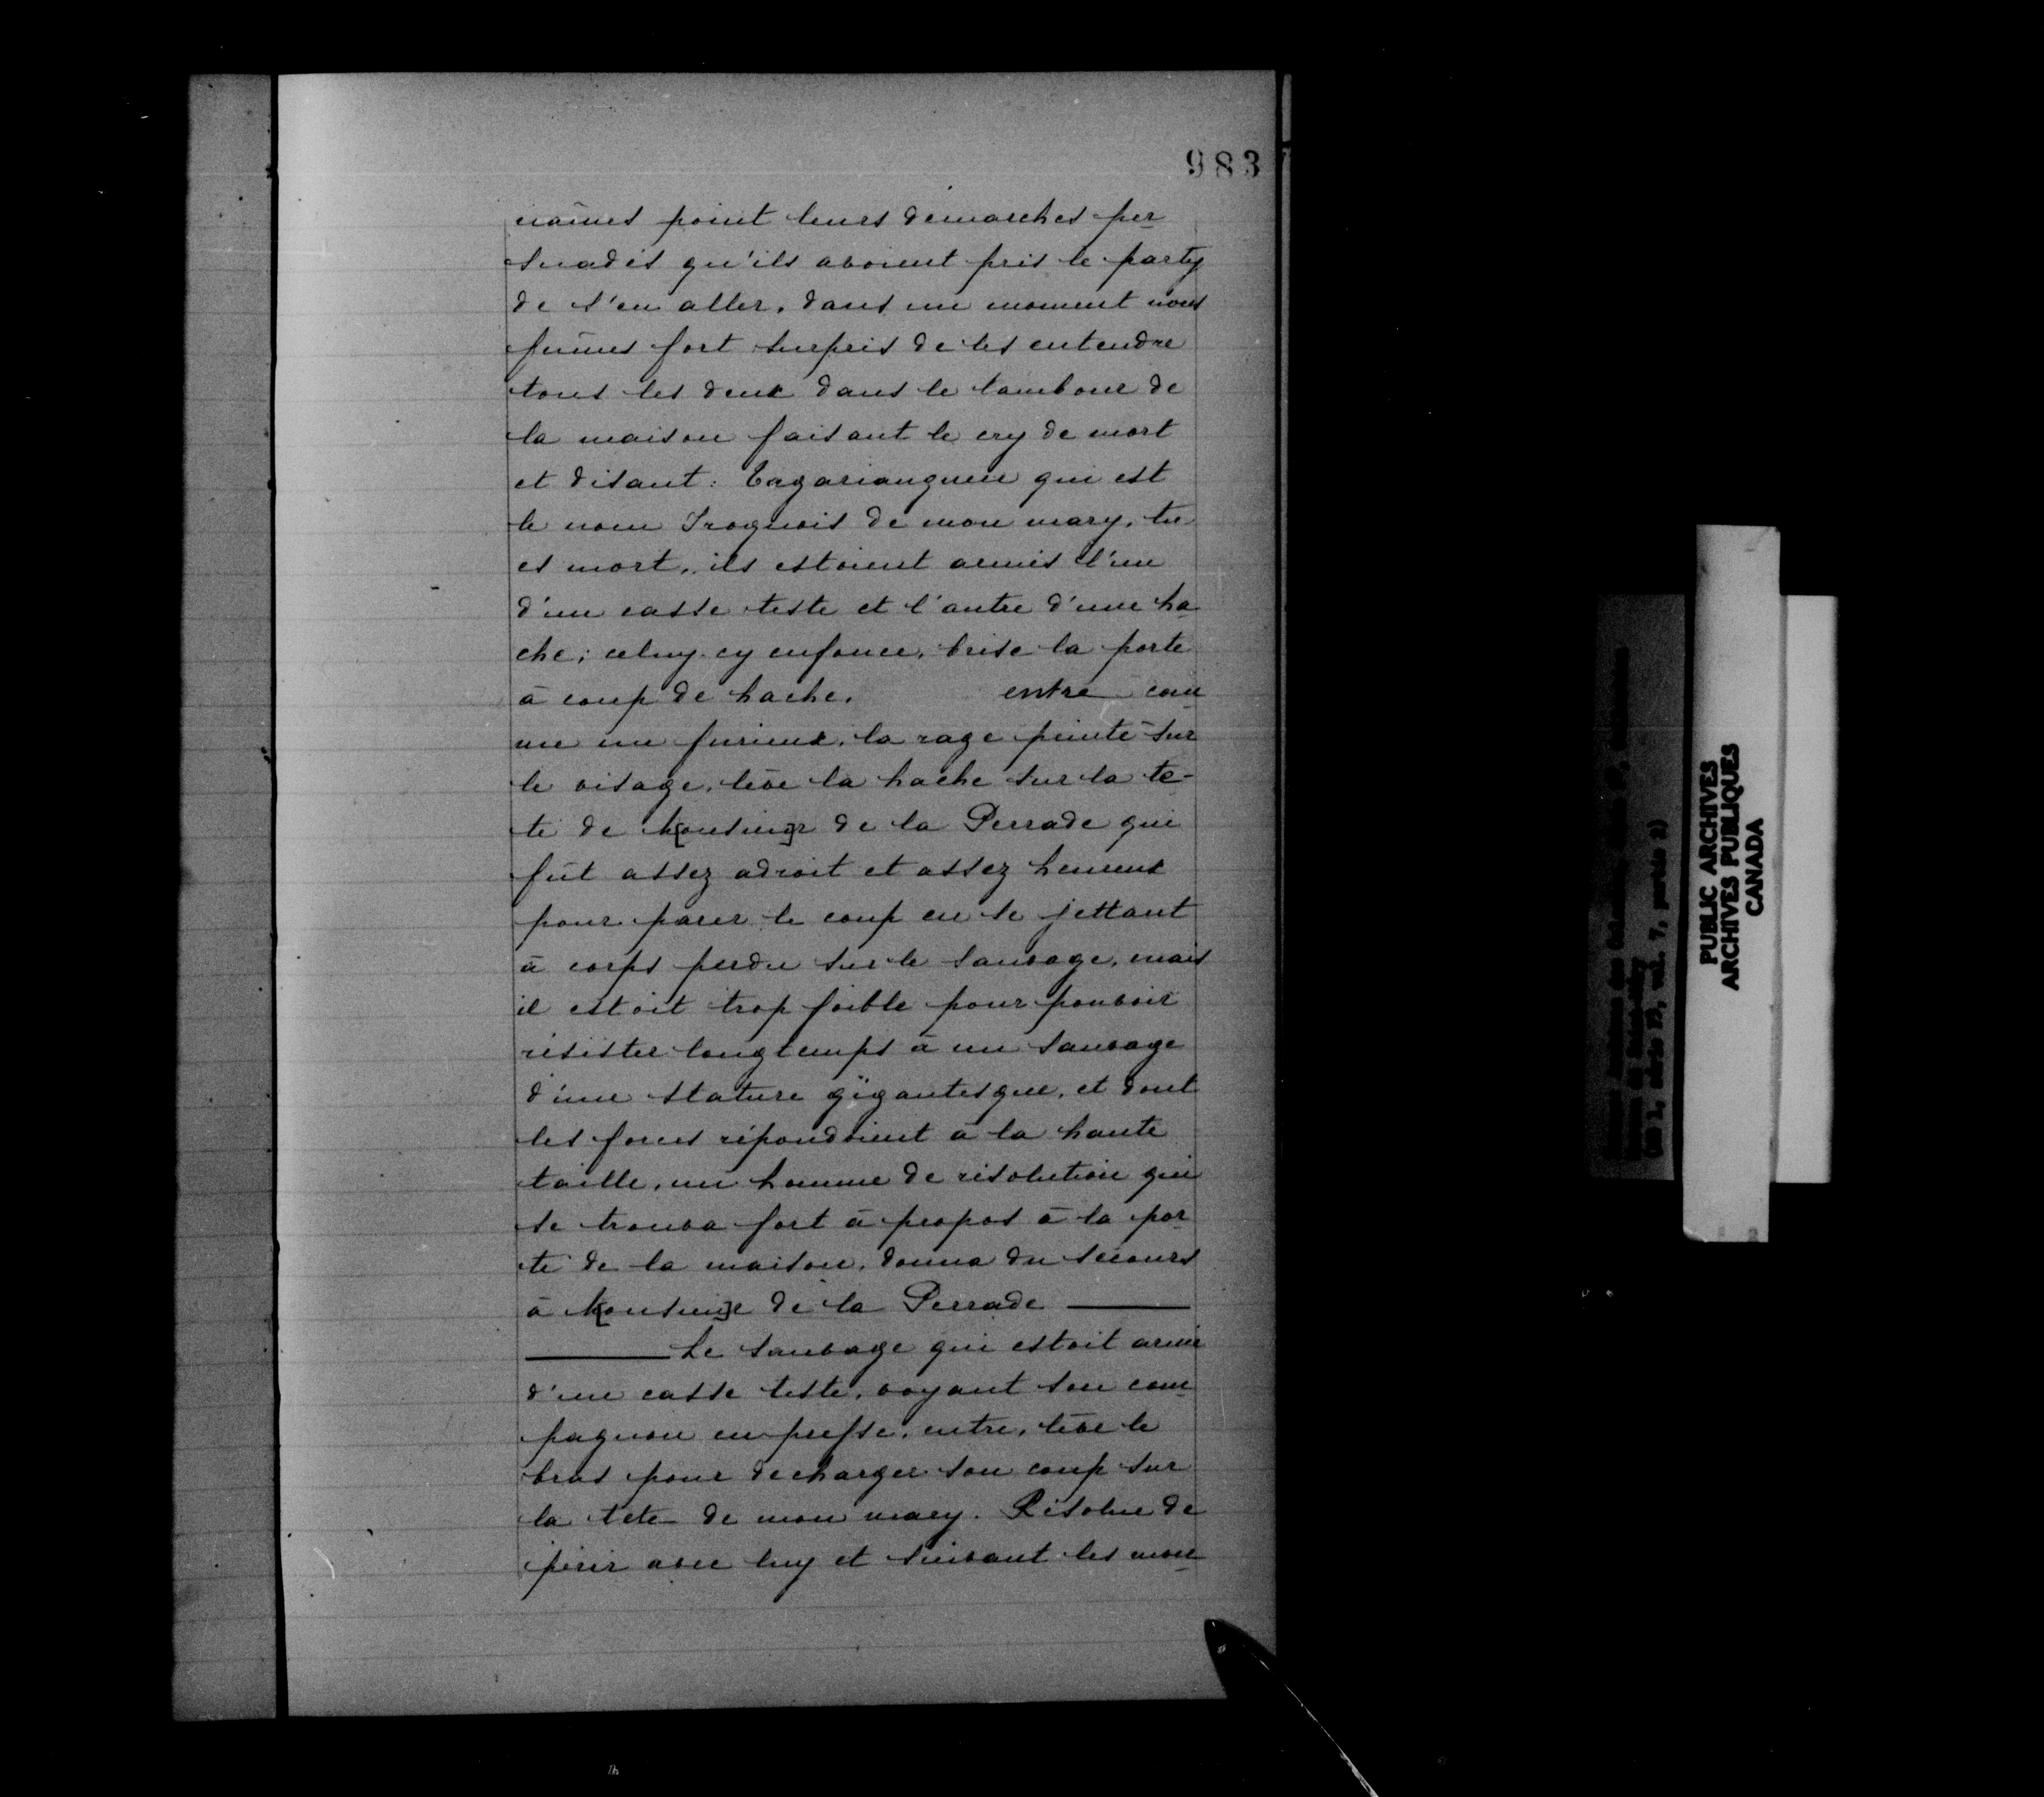 983
nâmes point leurs demarches per
suadés qu'ils avoient pris le party
de s'en aller. dans un moment nous
fûmes fort surpris de les entendre
tous les deux dans le tambour de
la maison faisant le cry de mort
et disant: Tagarianguen qui est
le nom Iroquois de mon mary, tu
es mort. ils estoient armés l'un
d'un casse teste et l'autre d'une ha
che; celuy cy enfonce, brise la porte
à coup de hache. entre com
me un furieux, la rage peinte sur
le visage, lève la hache sur la te-
te de M[onsieu]r de la Perrade qui
fût assez adroit et assez heureux
pour parer le coup en se jettant
à corps perdu sur le sauvage, mais
il estoit trop foible pour pouvoir
résister longtemps à un sauvage
d'une stature gigantesque, et dont
les forces répondoient à la haute
taille, un homme de résolution qui
se trouva fort à propos à la por
te de la maison, donna du secours
à M[onsieu]r de la Perrade
Le sauvage qui estoit armé
d'un casse teste, voyant son com
pagnon en presse, entre, lève le
bras pour decharger son coup sur
la tete de mon mary. Résolue de
périr avec luy et suivant les mou
PUBLIC ARCHIVES
ARCHIVES PUBLIQUES
CANADA
vol. 7, partie 2)